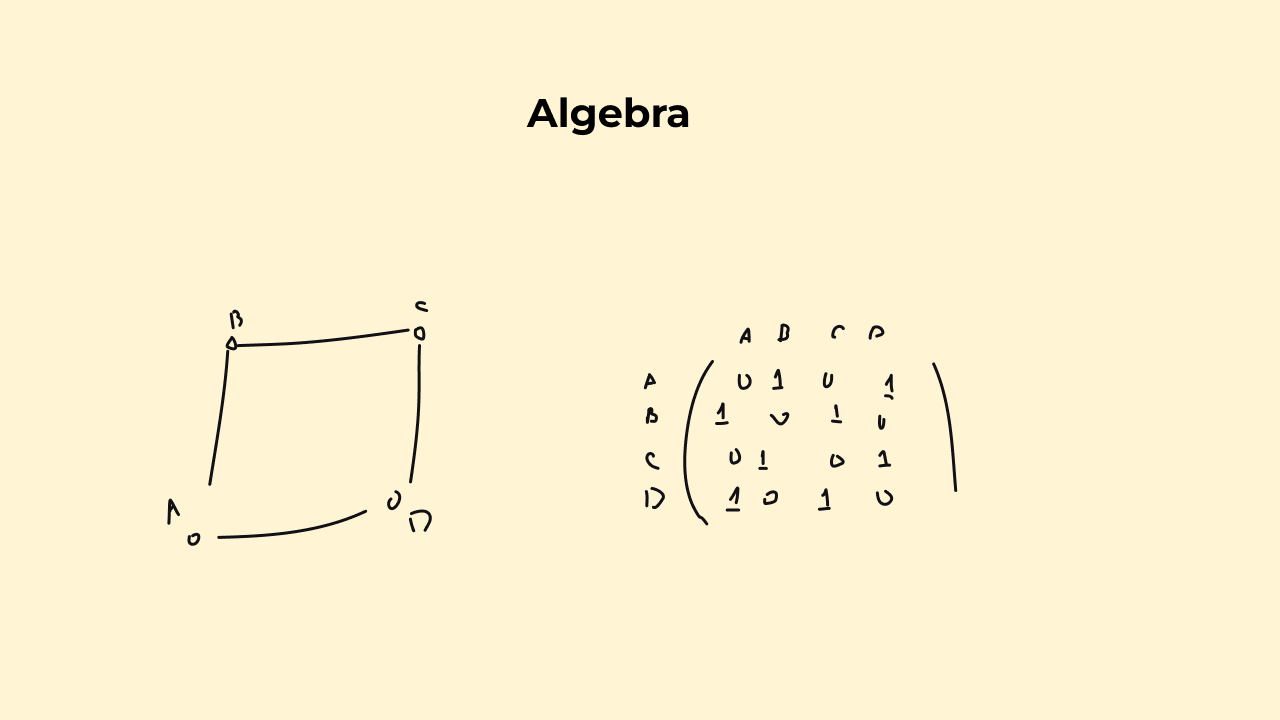 Algebra
B C
A D
A B C D
A 0 1 0 1
B 1 0 1 0
C 0 1 0 1
D 1 0 1 0